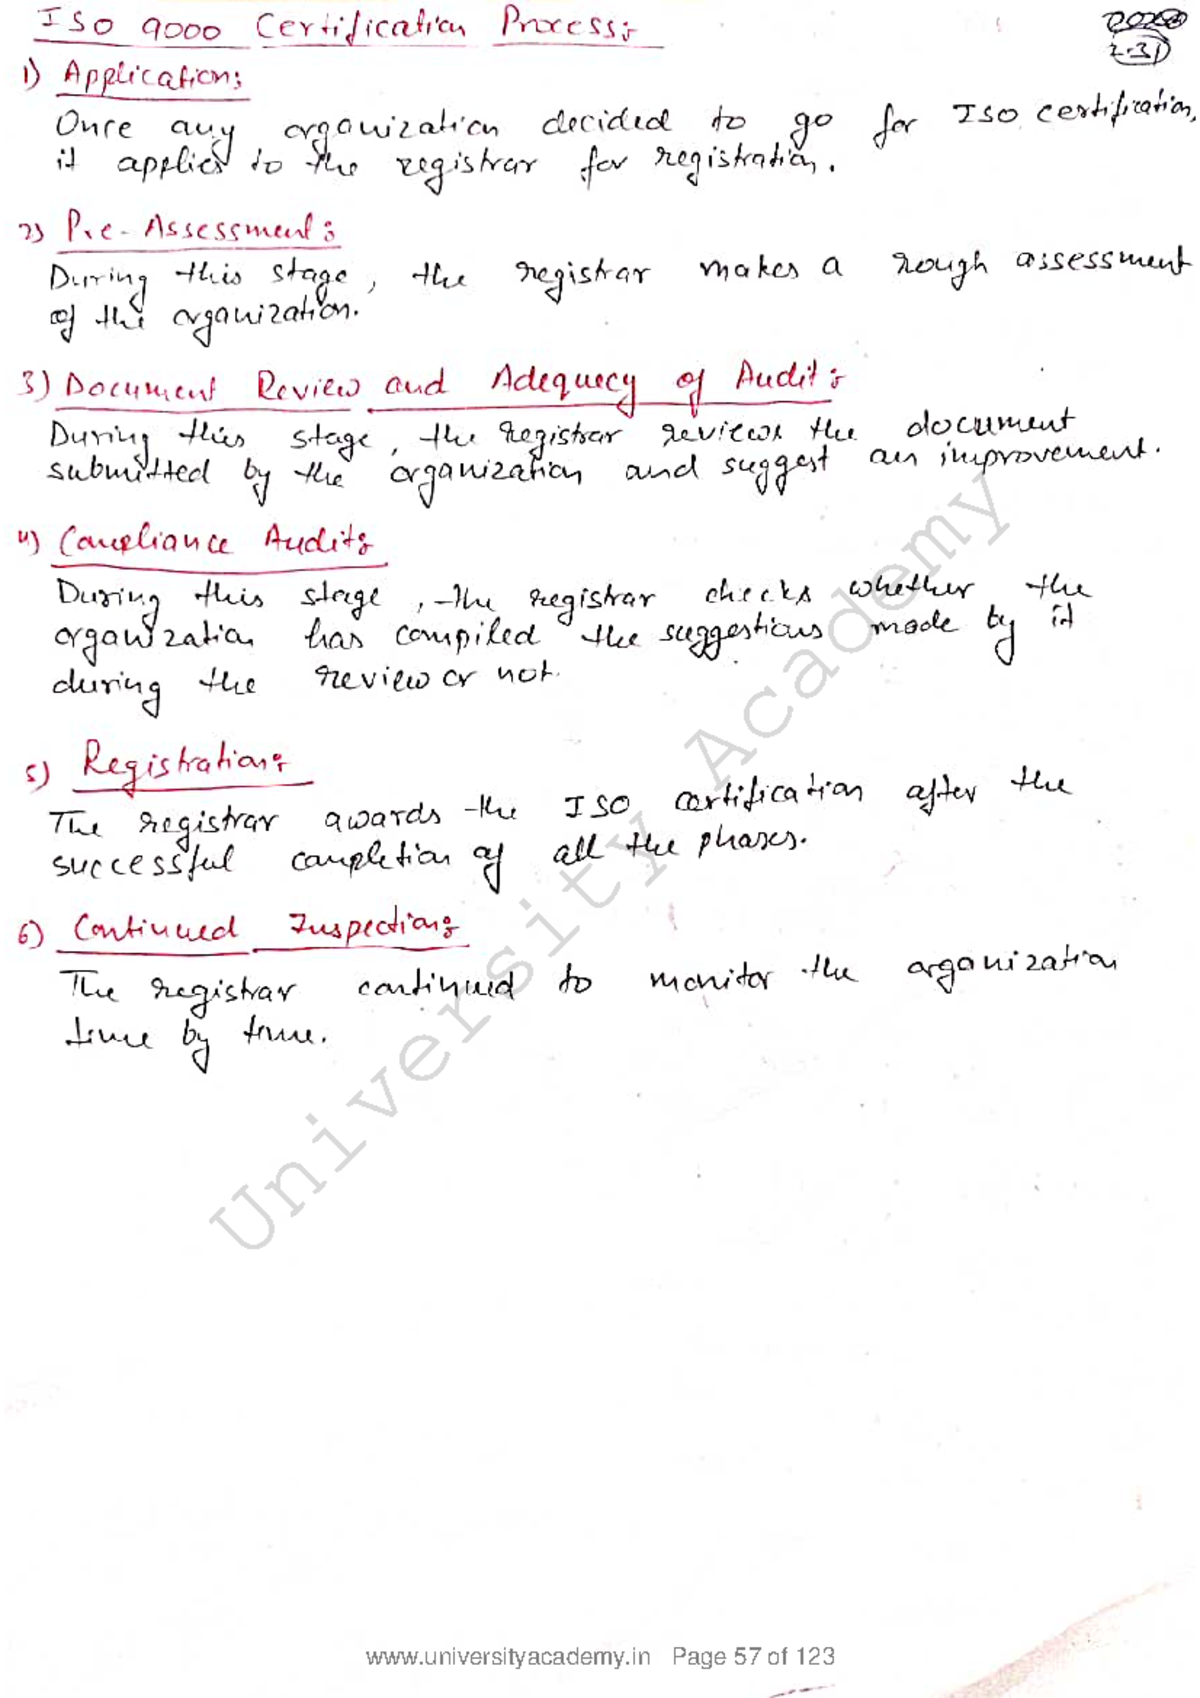 ISO 9000 Certification Process:
2.31
1) Application:
Once any organization decided to go for ISO certification,
it applies to the registrar for registration.
2) Pre-Assessment:
During this stage, the registrar makes a rough assessment
of the organization.
3) Document Review and Adequecy of Audit:
During this stage, the registrar reviews the document
submitted by the organization and suggest an improvement.
4) Compliance Audit:
During this stage, the registrar checks whether the
organization has compiled the suggestions made by it
during the review or not.
5) Registration:
The registrar awards the ISO certification after the
successful completion of all the phases.
6) Continued Inspection:
The registrar continued to monitor the organization
time by time.
University Academy
www.universityacademy.in Page 57 of 123